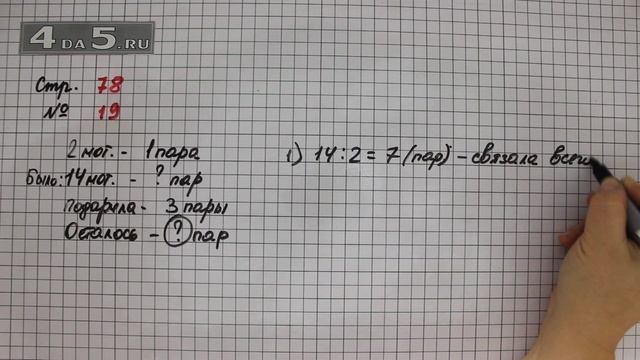 4DA5.RU
Стр. 78
№ 19
2 мот. - 1 пара
Было: 14 мот. - ? пар
Подарила - 3 пары
Осталось - ? пар
1) 14 : 2 = 7 (пар) - связала всего